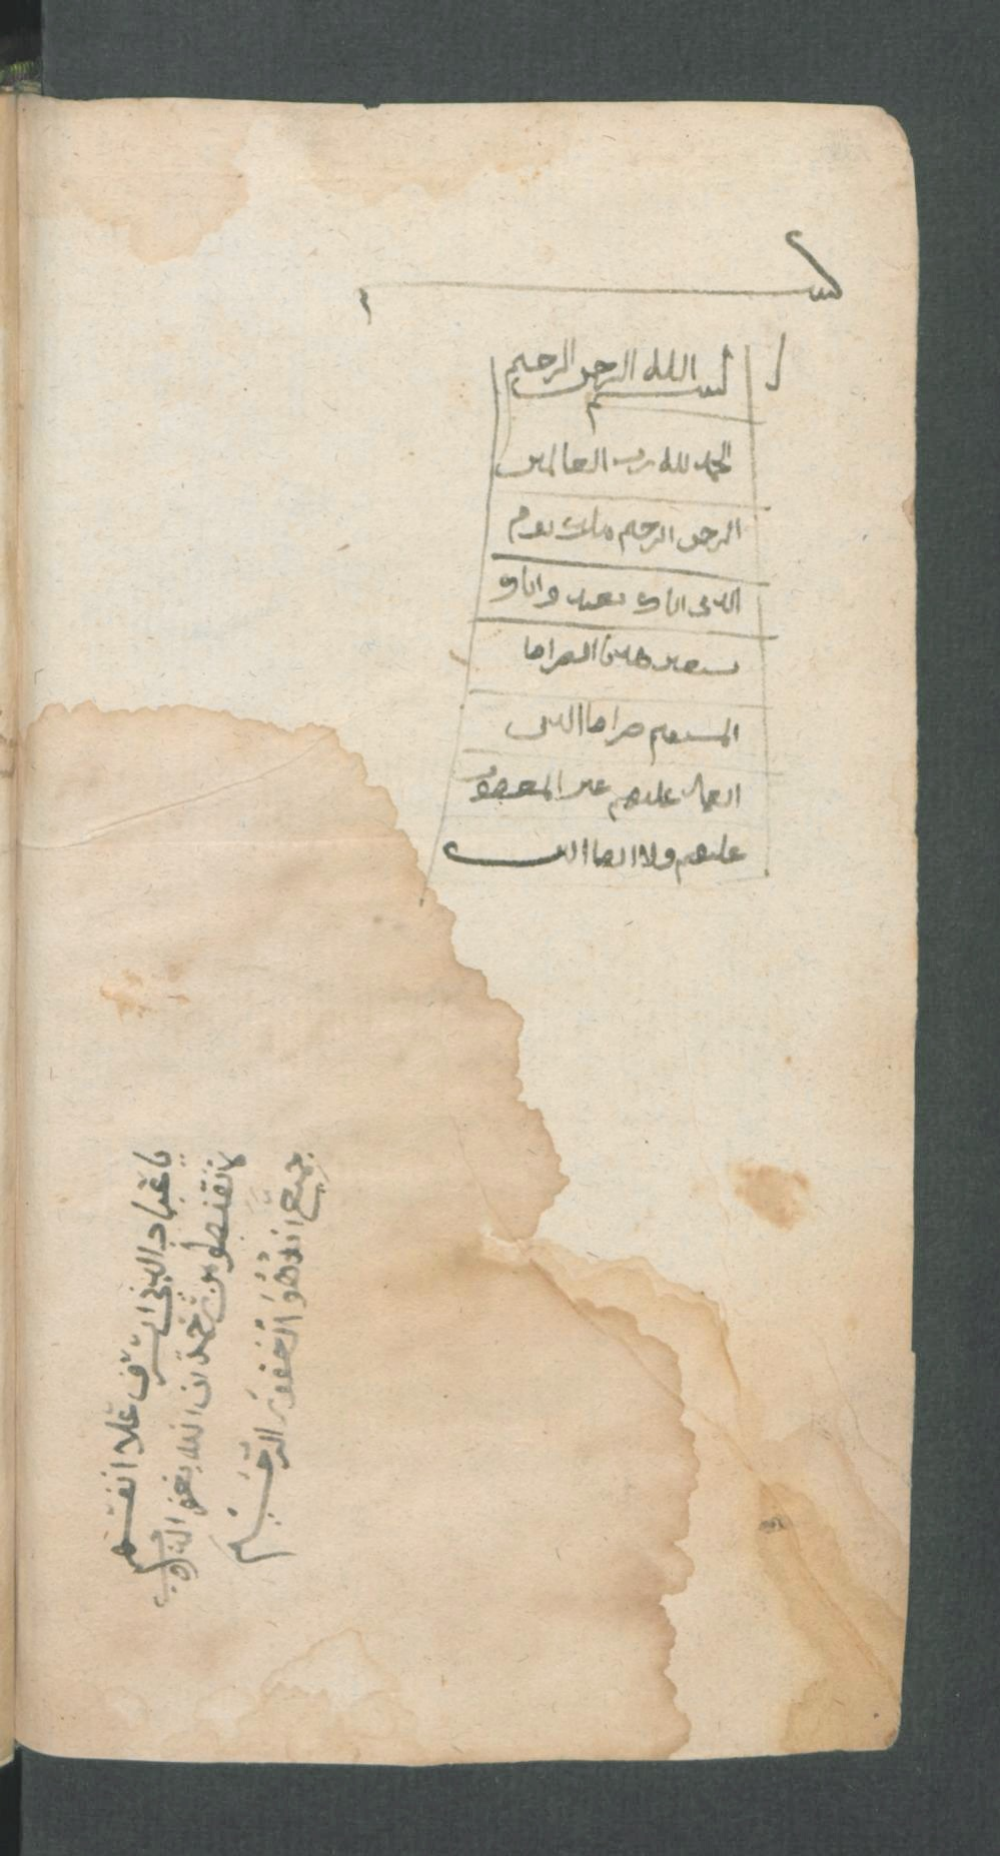 بسم
بسم الله الرحمن الرحيم
الحمد لله رب العالمين
الرحمن الرحيم ملك يوم
الدين اياك نعبد واياك
نستعين اهدنا الصراط
المستقيم صراط الذين
انعمت عليهم غير المغضوب
عليهم ولا الضالين
يا عباد الذين اسرف علا انفسهم
لا تقنطو من رحمة ان الله يغفر الذنوب
جميع انه هو الغفور الرحيم